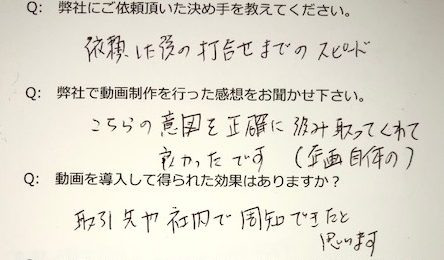 Q: 弊社にご依頼頂いた決め手を教えてください。
依頼した後の打合せまでのスピード
Q: 弊社で動画制作を行った感想をお聞かせ下さい。
こちらの意図を正確に汲み取ってくれて
良かったです (企画自体の)
Q: 動画を導入して得られた効果はありますか?
取引先や社内で周知できたと
思います